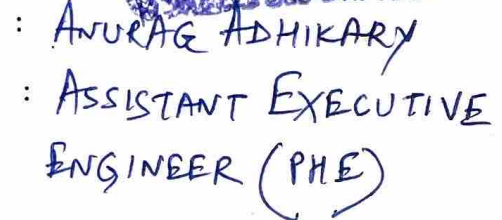 : ANURAG ADHIKARY
: ASSISTANT EXECUTIVE
ENGINEER (PHE)